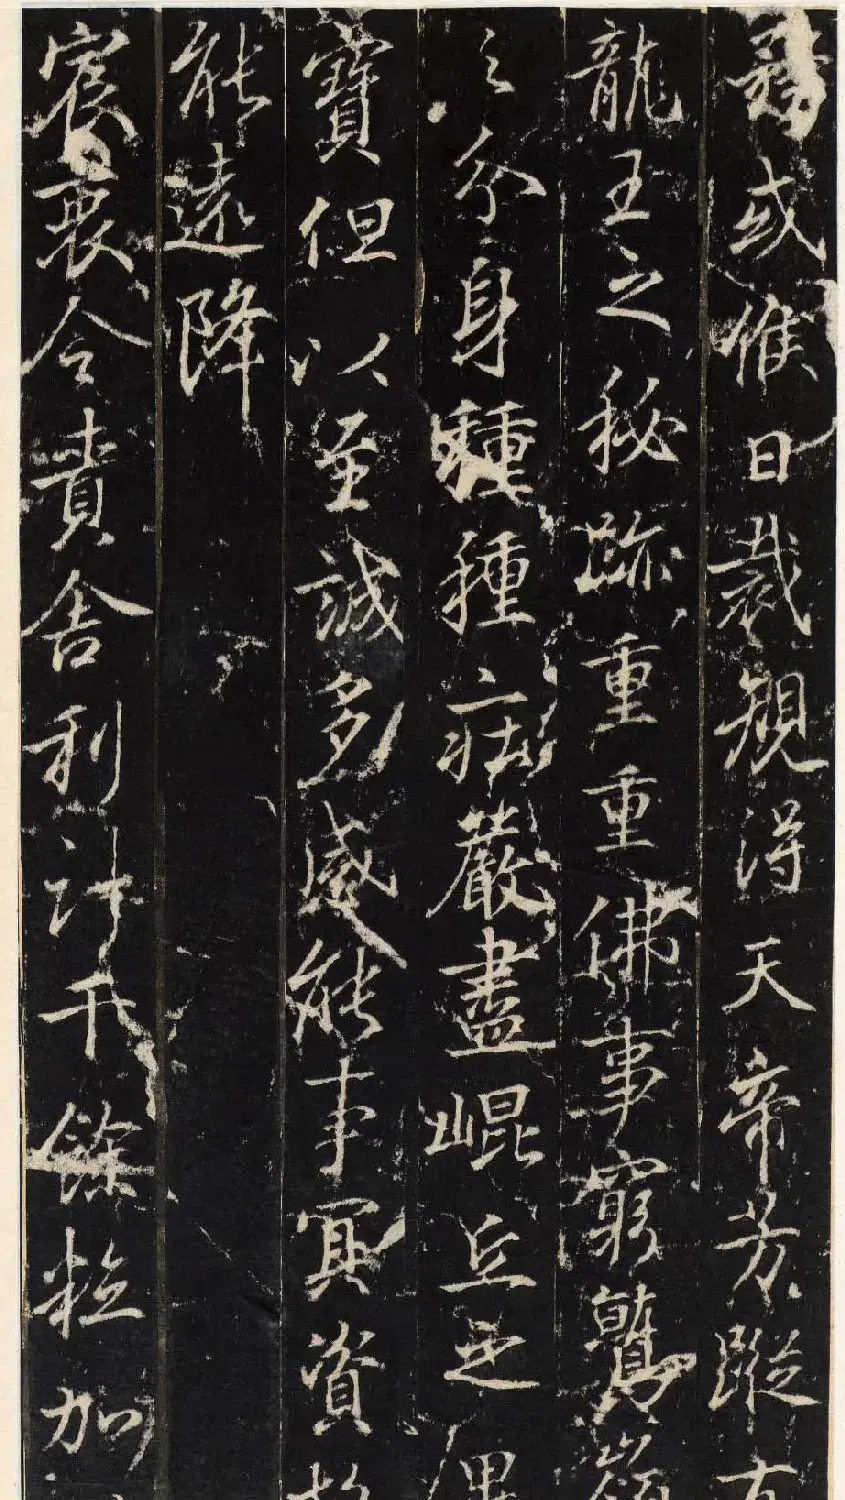 務或候日裁規得天帝芳蹤有
龍王之秘跡重重佛事窮鷲嶺
之分身種種莊嚴盡崐丘之異
寶但以至誠多感能事冥資故
能遠降
宸衷令責舍利計千餘粒加